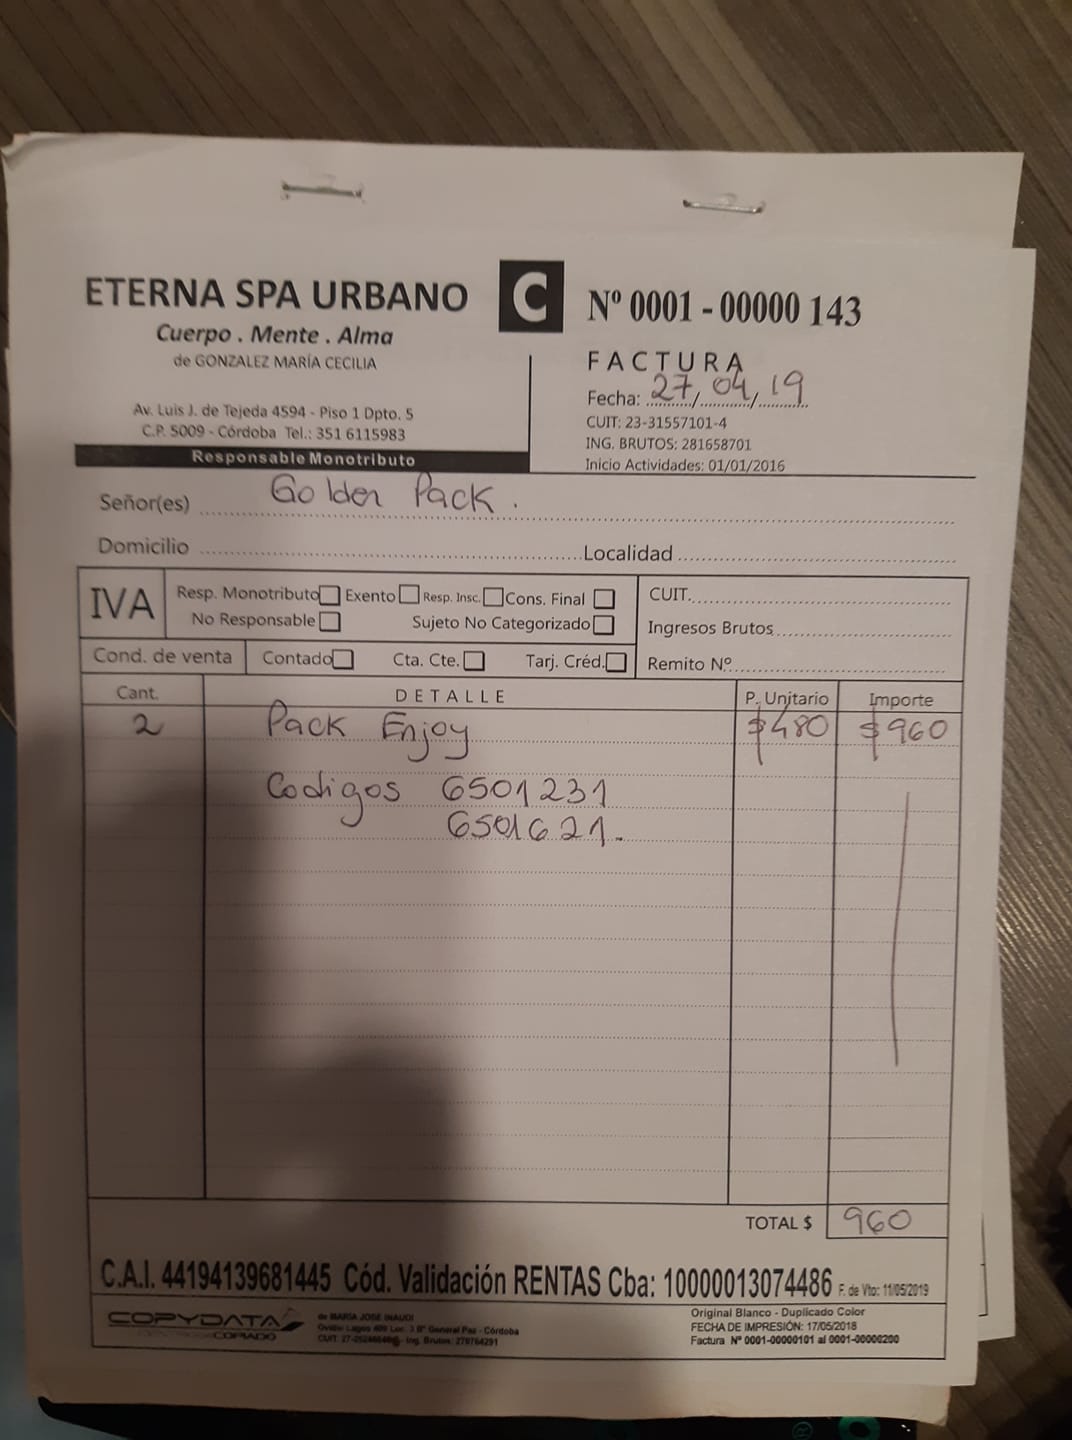 ETERNA SPA URBANO
Cuerpo . Mente . Alma
de GONZALEZ MARÍA CECILIA
Av. Luis J. de Tejeda 4594 - Piso 1 Dpto. 5
C.P. 5009 - Córdoba Tel.: 351 6115983
Responsable Monotributo
C
Nº 0001 - 00000 143
FACTURA
Fecha: 27/04/19
CUIT: 23-31557101-4
ING. BRUTOS: 281658701
Inicio Actividades: 01/01/2016
Señor(es) Golden Pack.
Domicilio Localidad
IVA
Resp. Monotributo Exento Resp. Insc. Cons. Final
No Responsable Sujeto No Categorizado
CUIT.
Ingresos Brutos
Cond. de venta Contado Cta. Cte. Tarj. Créd. Remito Nº
Cant. DETALLE P. Unitario Importe
2 Pack Enjoy $480 $960
Codigos 6501231
6501621.
TOTAL $ 960
C.A.I. 44194139681445 Cód. Validación RENTAS Cba: 10000013074486 F. de Vto: 11/05/2019
COPYDATA
COPIADO
de MARIA JOSE INAUDI
General Paz - Córdoba
Ing. Brutos: 270764291
Original Blanco - Duplicado Color
FECHA DE IMPRESIÓN: 17/05/2018
Factura Nº 0001-00000101 al 0001-00000200